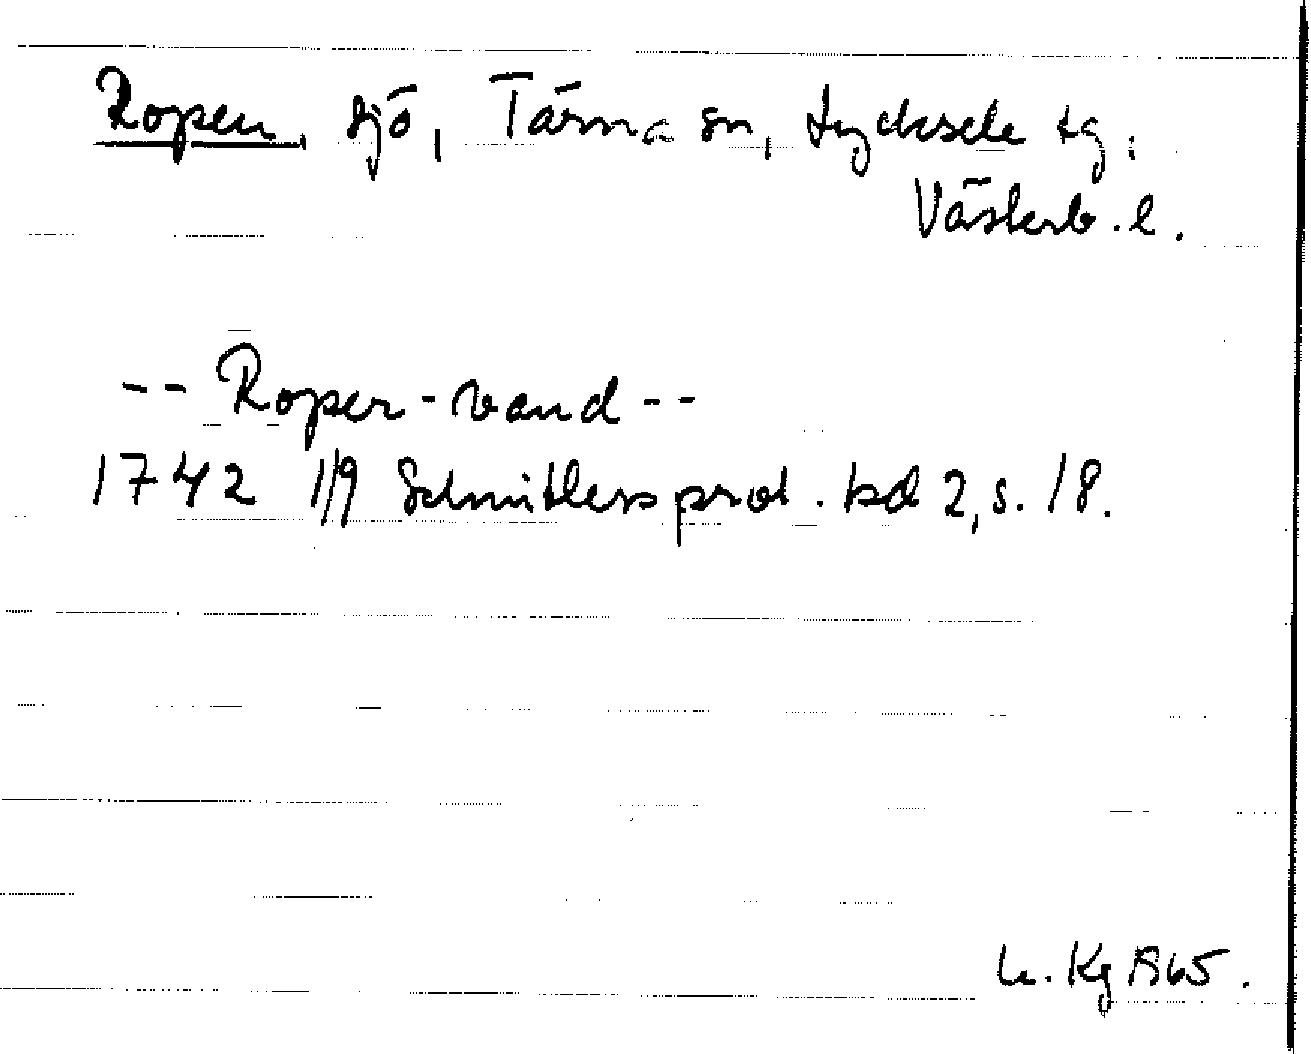 Ropen, sjö, Tärna sn, Lycksele tg.
Västerb. l.
-- Roper-vand --
1742 1/9 Schnitlers prot. bd 2, s. 18.
Kg 1965.